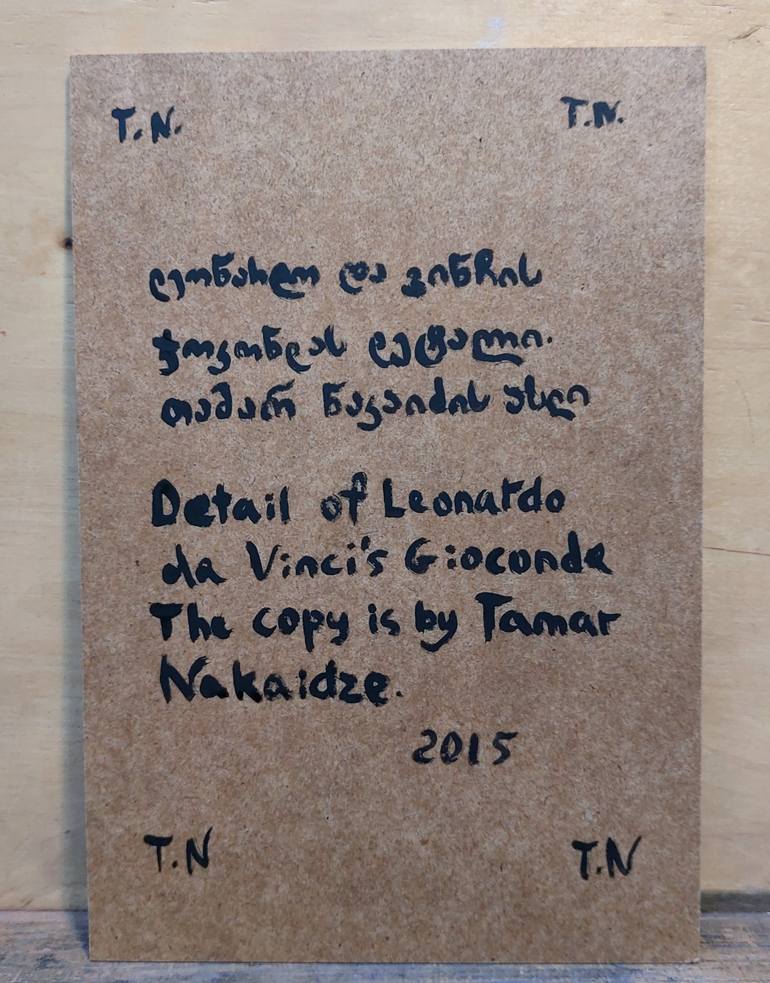 T. N. T.N.
ლეონარდო და ვინჩის
ჯოკონდას დეტალი.
თამარ ნაკაიძის ასლი
Detail of Leonardo
da Vinci's Gioconda
The copy is by Tamar
Nakaidze.
2015
T.N T.N